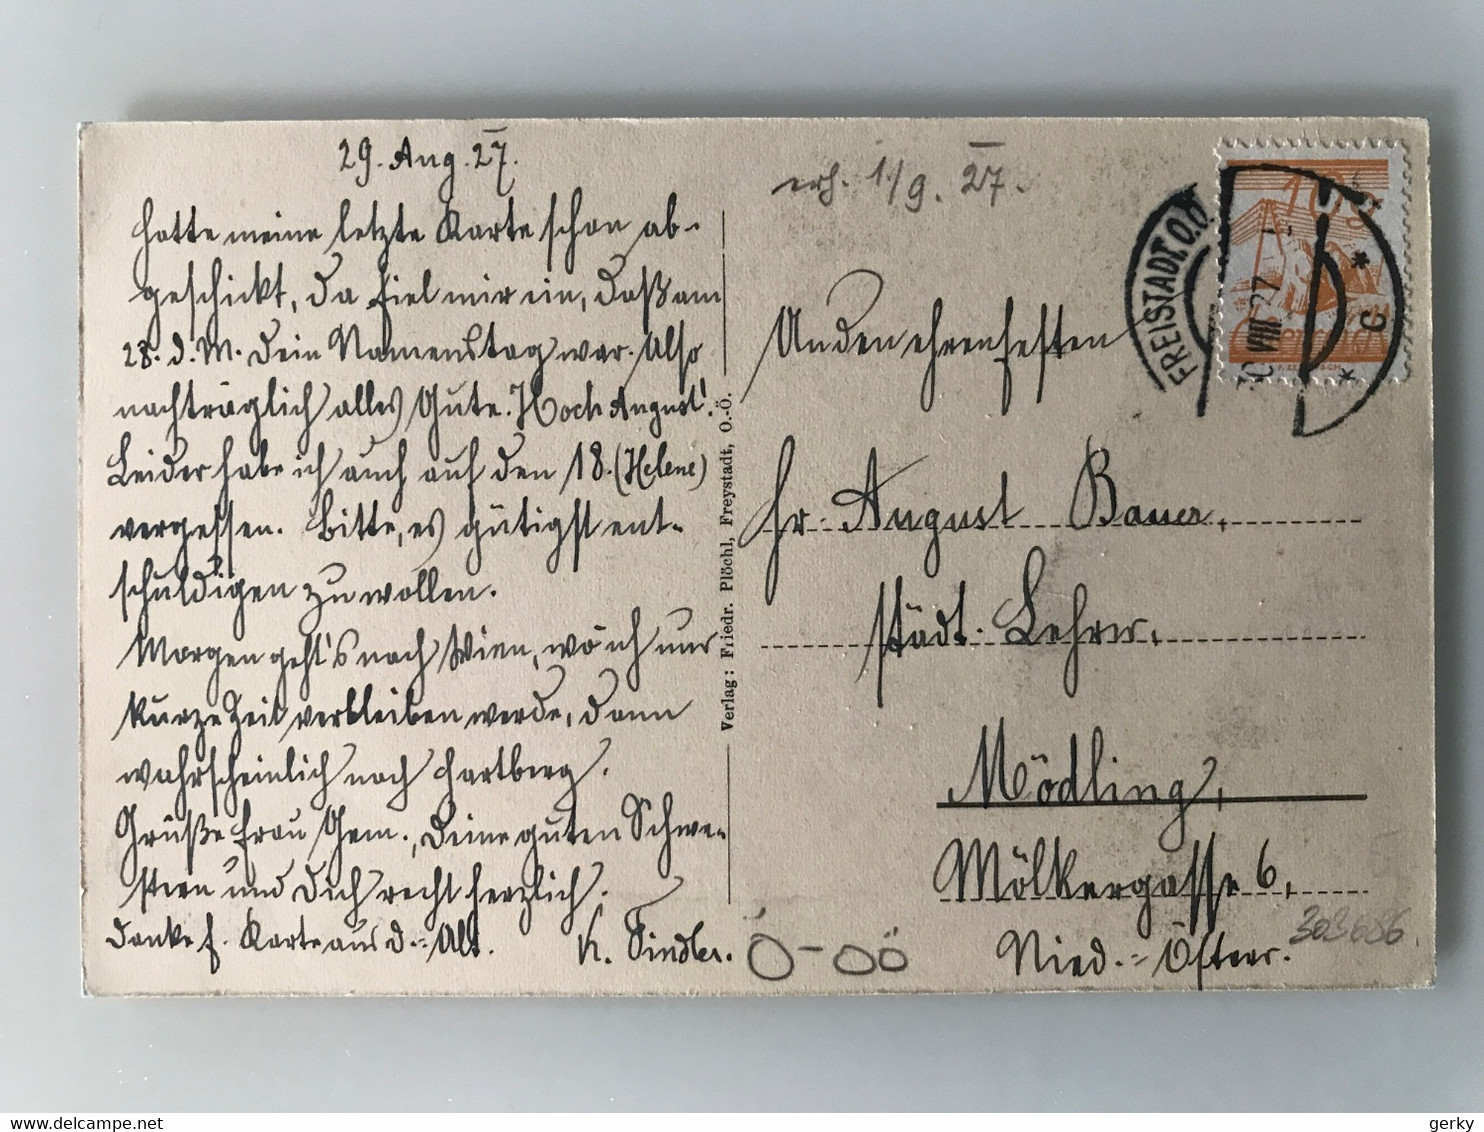 29. Aug. 27.
Hatte meine letzte Karte schon ab-
geschickt, da fiel mir ein, daß am
28. d. M. Dein Namenstag war. Also
nachträglich alles Gute. Hoch August!
Leider habe ich auch auf den 18. (Helene)
vergessen. Bitte, es gütigst ent-
schuldigen zu wollen.
Morgen geht's nach Wien, wo ich nur
kurze Zeit verbleiben werde, dann
wahrscheinlich nach Hartberg.
Grüße Frau Gem., Deine guten Schwe-
stern und Dich recht herzlich.
Danke f. Karte aus d.=Alt. K. Sindler.
Verlag: Friedr. Plöchl, Freystadt, O.-Ö.
erh. 1/9. 27.
FREISTADT O.Ö.
30 VIII 27
* C *
10 g
Oesterreich
An den ehrenfesten
Hr. August Bauer,
städt. Lehrer,
Mödling,
Mölkergasse 6,
Nied.=Österr.
303686
Ö-OÖ
gerky